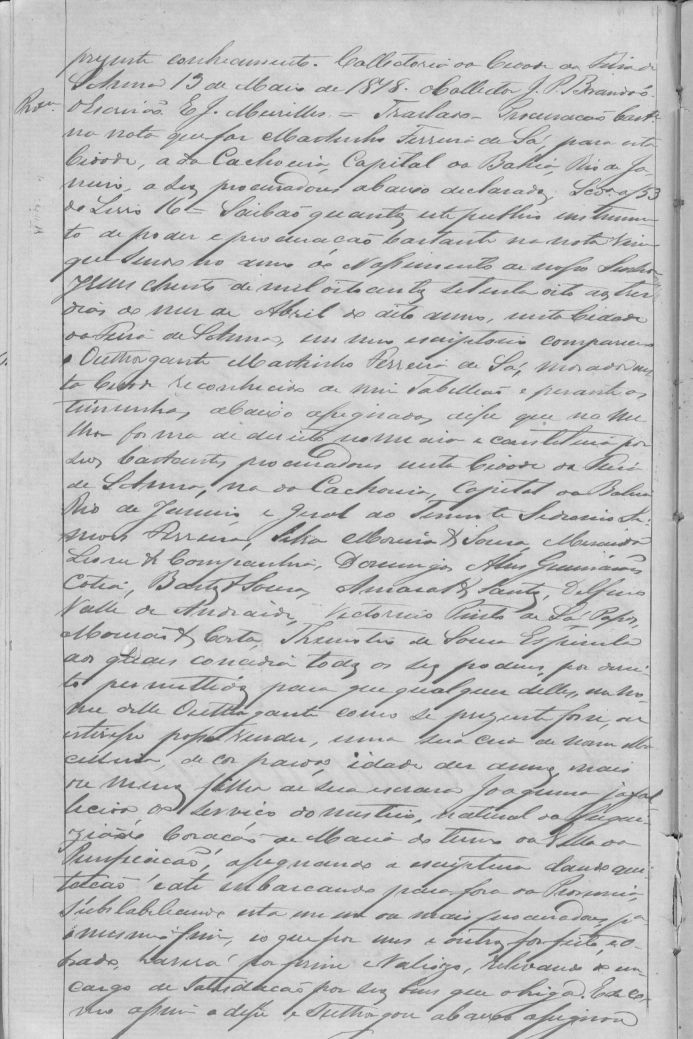 presente conhecimento. Collectoria da Cidade da Feira de
Sant'Anna 13 de Maio de 1878. O Collector J. P. Brandão.
Procuram
O Escrivão E. J. Meirelles. = Traslado - Procuração basta
na nota que faz Martinho Ferreira de Sá, para esta
Cidade, a da Cachoeira, Capital da Bahia, Rio de Ja-
neiro, a seus procuradores abaixo declarados. 53
do Livro 16 - Saibão quantos este publico instrumen-
to de poder e procuração bastante na nota virem
que sendo no anno do Nascimento de nosso Senhor
Jesus Christo de mil oitocentos setenta oito aos tres
dias do mez de Abril do dito anno, nesta Cidade
da Feira de Sant'Anna, em meu escriptorio compareceo
o Outhorgante Martinho Ferreira de Sá, morador nes-
ta Cidade reconhecido de mim Tabellião e perante as
timunhas abaixo assignadas, disse que na me-
lhor forma de direito nomeava e constituia por
seos bastantes procuradores nesta Cidade da Feira
de Sant'Anna, na da Cachoeira, Capital da Bahia
Rio de Janeiro e geral ao Tenente
Ferreira, Silva Moreira & Souza, Miranda
& Companhia, Domingos Alves Guimarães
Cotia, Bastos & Souza, Amaral & Santos, Delfino
Valle de Andrade, Victorino Pinto de Sá Passos,
Mourão & Costa, de Souza Espinola
aos quaes concedia todos os seos poderes, por direi-
to permittidos para que qualquer delles, em no-
me delle Outhorgante como se prezente fora, ou
estivesse possa vender, uma sua cria de nome
, de cor parda, idade dez annos mais
ou menos, filha de sua escrava Joaquina,
do serviço domestico, natural da Fregue-
zia do Coração de Maria do termo da Villa da
Purificação, assignando a escriptura dando qui-
tação e ate embarcando para fora da Provincia,
substabelecendo esta em um ou mais procuradores pa-
o mesmo fim, o que por uns e outros for feito, e o-
brado, haverá por firme e Valioso, relevando do en-
cargo de satisdação por seos bens que obriga. E de co-
mo assim o disse e Outhorgou abaixo assignou